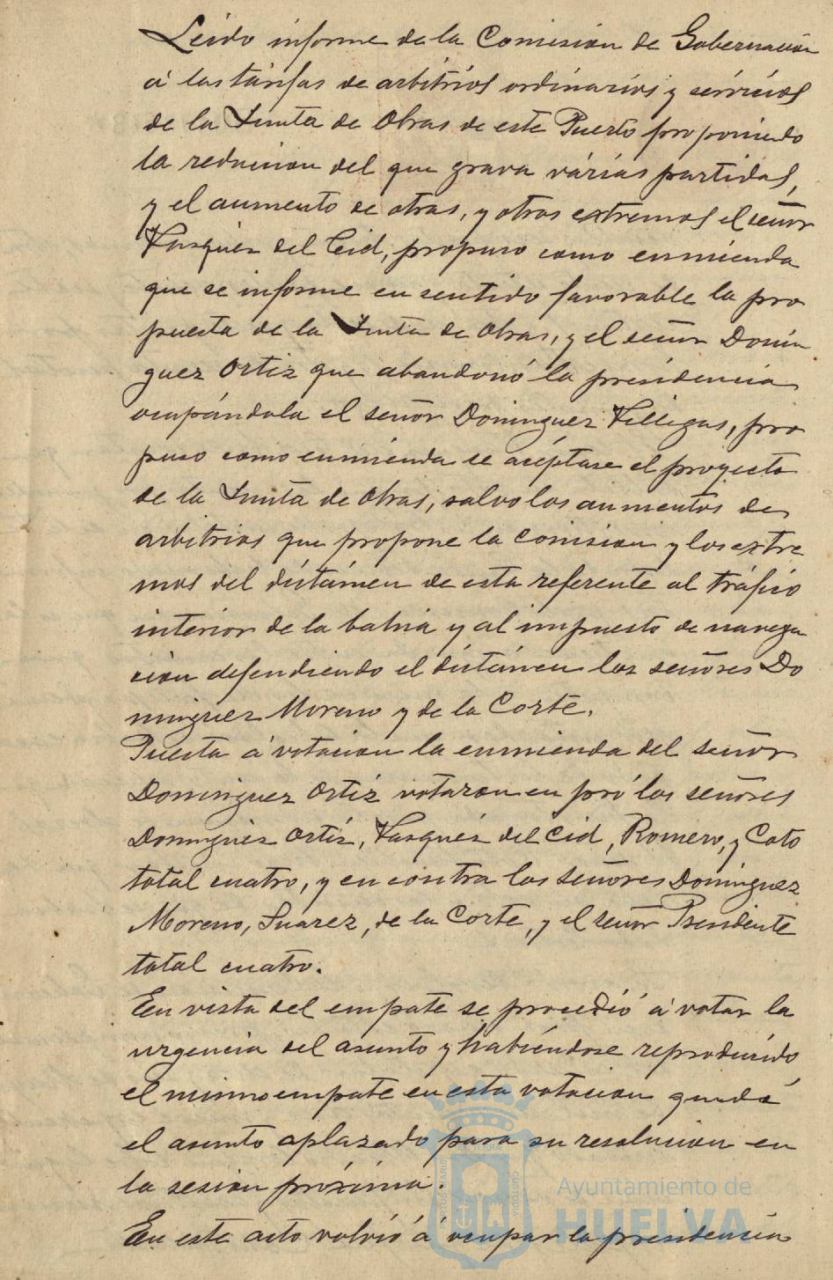 Leido informe de la Comisión de Gobernación
á las tárifas de arbitrios ordinarios y servicios
de la Junta de Obras de este Puerto proponiendo
la reducion del que grava várias partidas,
y el aumento de otras, y otros extremos el señor
Vasquez del Cid, propuso como enmienda
que se informe en sentido favorable la pro
puesta de la Junta de Obras, y el señor Domin
guez Ortiz que abandonó la presidencia
ocupándola el señor Dominguez Villegas, pro
puso como enmienda se acéptase el proyecto
de la Junta de Obras, salvo los aumentos de
arbitrios que propone la comision y los extre
mos del dictámen de esta referente al tráfico
interior de la bahia y al impuesto de navega
cion defendiendo el dictámen los señores Do
minguez Moreno y de la Corte.
Puesta á votacion la enmienda del señor
Dominguez Ortiz votaron en pró los señores
Dominguez Ortiz, Vasquéz del Cid, Romero, y Coto
total cuatro, y en contra los señores Dominguez
Moreno, Suarez, de la Corte, y el señor Presidente
total cuatro.
En vista del empate se procedió á votar la
urgencia del asunto y habiéndose reproducido
el mismo empate en esta votacion quedó
el asunto aplazado para su resolucion en
la sesion próxima.
Ayuntamiento de
HUELVA
En este acto volvió á ocupar la presidencia